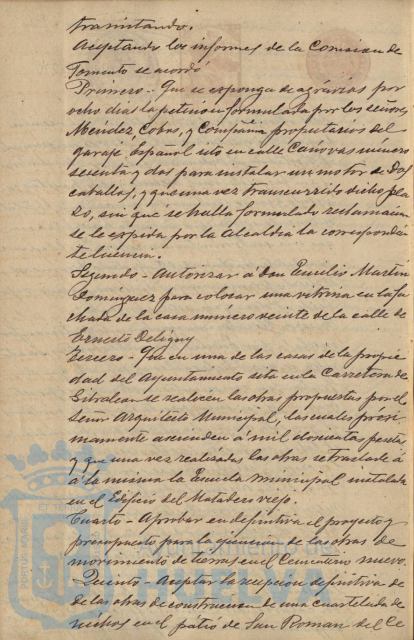 tramitando.
Aceptando los informes de la Comision de
Fomento se acordó
Primero - Que se exponga de agravios por
ocho dias la peticion formulada por los señores
Mendez, Cobos, y Compañia propietarios del
garaje Español sito en calle Cánovas número
sesenta y dos para instalar un motor de dos
caballos, y que una vez transcurrido dicho pla
zo, sin que se halla formulado reclamacion
se le expida por la Alcaldia la correspondien
te licencia.
Segundo - Autorizar á Don Emilio Martin
Dominguez para colocar una vitrina en la fa
chada de la casa número veinte de la calle de
Ernesto Deligny
Tercero - Que en una de las casas de la propie
dad del Ayuntamiento sita en la Carretera de
Gibraleon se realicen las obras propuestas por el
Señor Arquitecto Municipal, las cuales próxi
mamente ascienden á mil doscientas pesetas
y que una vez realizadas las obras se traslade á
á la misma la Escuela municipal instalada
en el Edificio del Matadero viejo.
Cuarto - Aprobar en definitiva el proyecto y
presupuesto para la ejecucion de las obras de
movimiento de tierras en el Cementerio nuevo.
Quinto - Aceptar la recepcion definitiva de
de las obras de construccion de una cuartelada de
nichos en el patio de San Roman del Ce
HUELVA